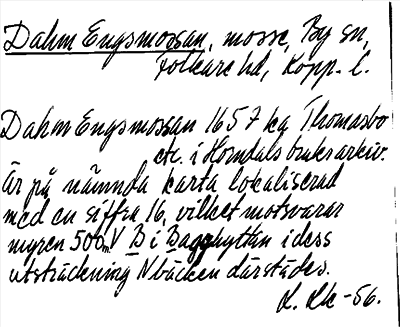 Dahm Engsmossan, mosse, By sn,
Folkare hd, Kopp. l.
Dahm Engsmossan 1657 ka Thomasbo
etc. i Horndals bruksarkiv.
Är på nämnda karta lokaliserad
med en siffra 16, vilket motsvarar
myren 500 m V B i Bagghyttan i dess
utsträckning N bäcken därstädes.
-56.